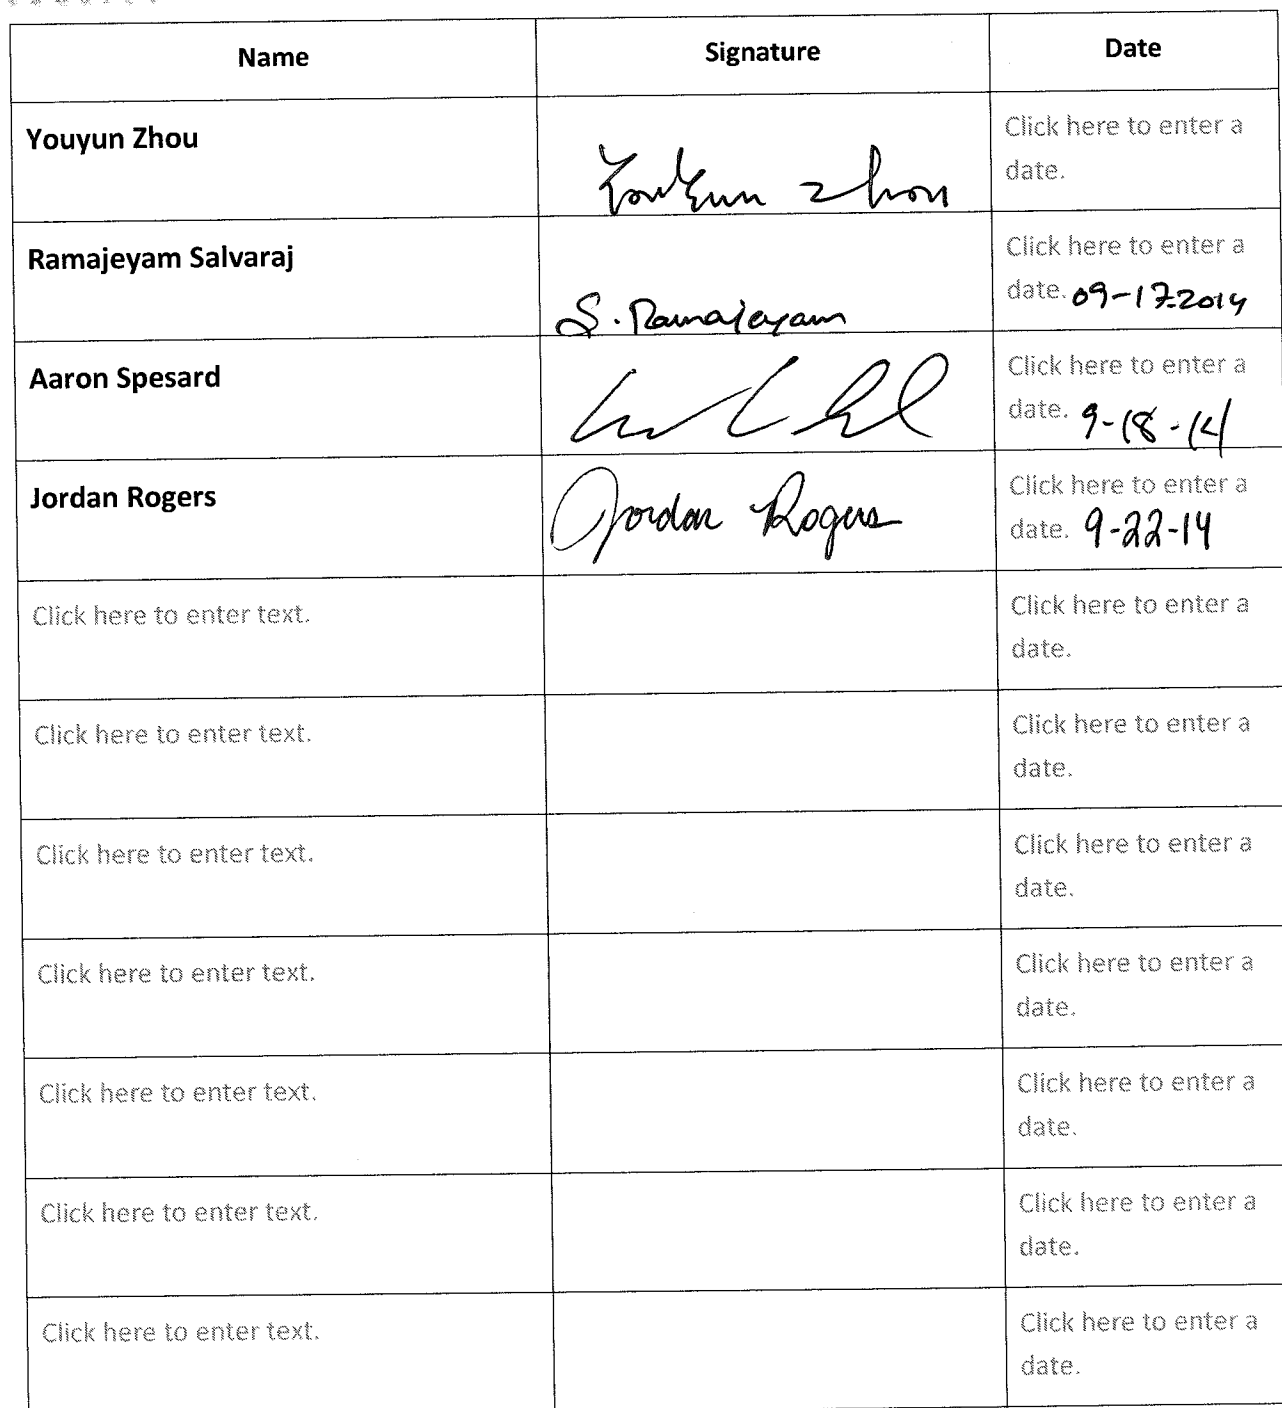 Name Signature Date
Youyun Zhou Click here to enter a
date.
Youyun Zhou
Ramajeyam Salvaraj Click here to enter a
date. 09-17-2014
S. Ramajeyam
Aaron Spesard Click here to enter a
date. 9-18-14
Jordan Rogers Jordan Rogers Click here to enter a
date. 9-22-14
Click here to enter text. Click here to enter a
date.
Click here to enter text. Click here to enter a
date.
Click here to enter text. Click here to enter a
date.
Click here to enter text. Click here to enter a
date.
Click here to enter text. Click here to enter a
date.
Click here to enter text. Click here to enter a
date.
Click here to enter text. Click here to enter a
date.